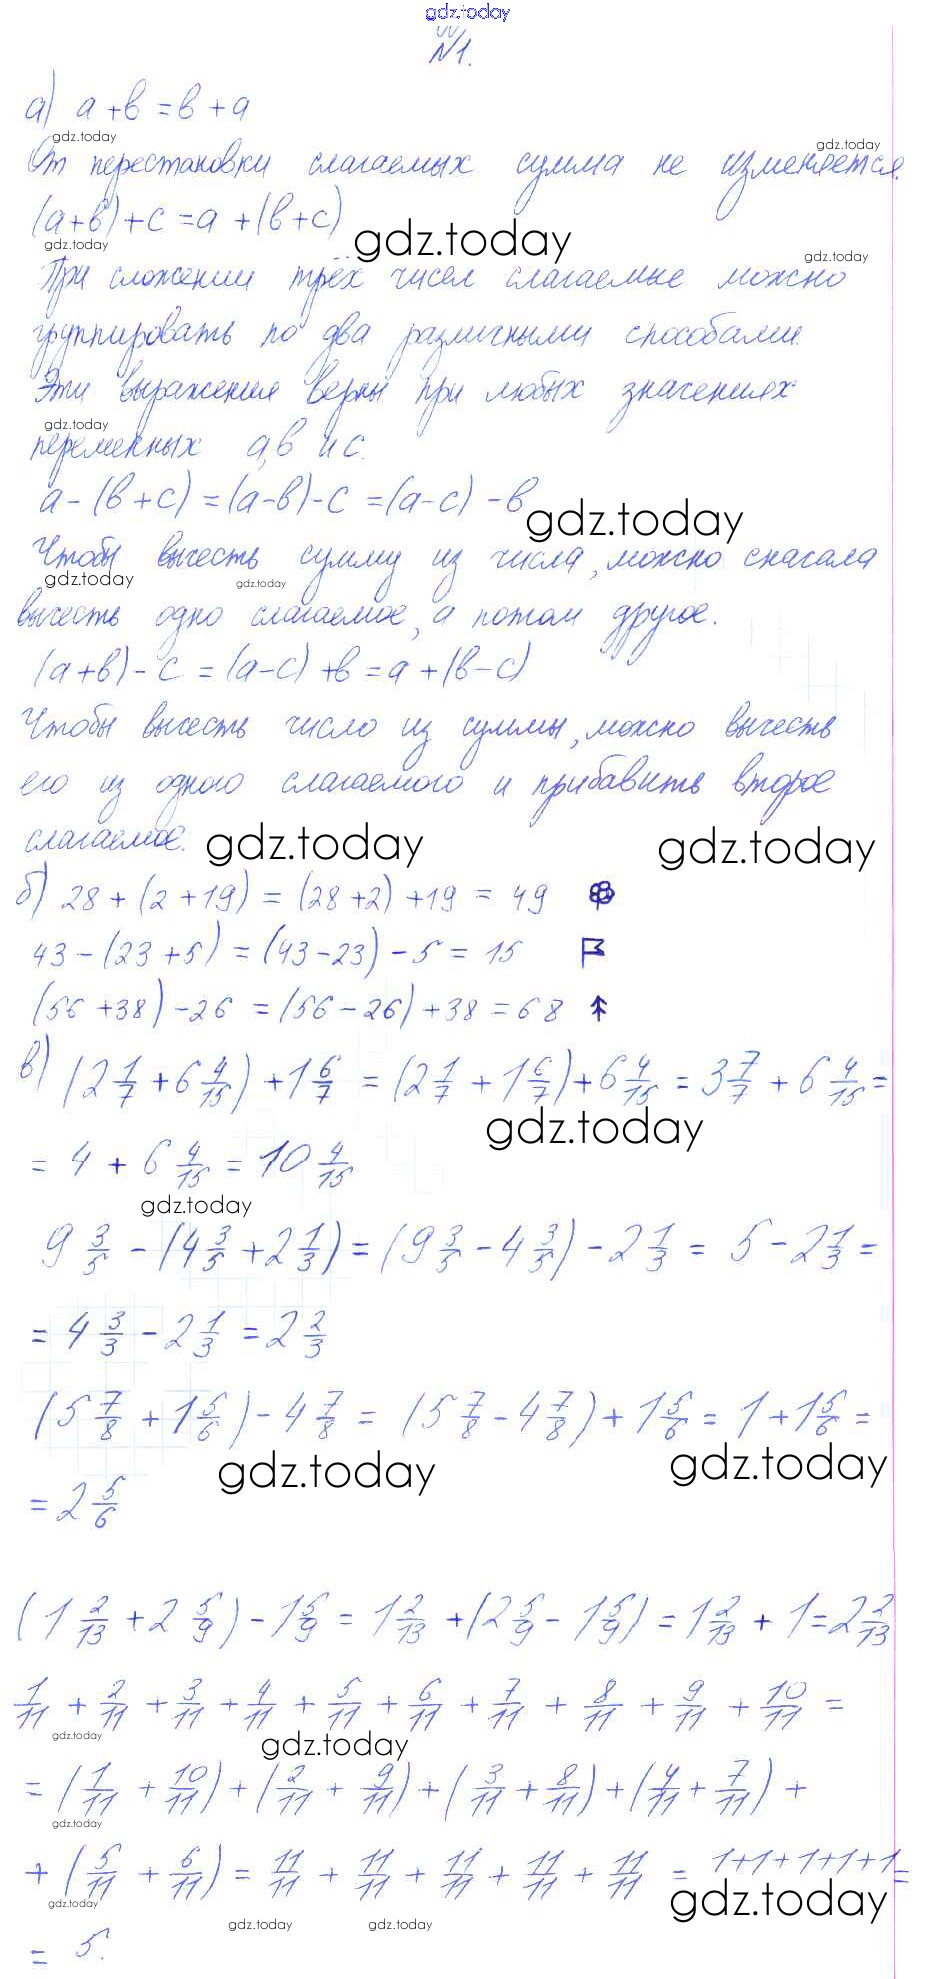 gdz.today
№1.
а) а + в = в + а
gdz.today gdz.today
От перестановки слагаемых сумма не изменяется.
(а+в)+с = а + (в+с)
gdz.today gdz.today gdz.today
При сложении трёх чисел слагаемые можно
группировать по два различными способами.
Эти выражения верны при любых значениях
gdz.today
переменных а,в и с.
а - (в + с) = (а-в) - с = (а-с) - в
gdz.today
Чтобы вычесть сумму из числа, можно сначала
gdz.today gdz.today
вычесть одно слагаемое, а потом другое.
(а+в) - с = (а-с) + в = а + (в-с)
Чтобы вычесть число из суммы, можно вычесть
его из одного слагаемого и прибавить второе
слагаемое.
gdz.today gdz.today
б) 28 + (2 + 19) = (28 + 2) + 19 = 49
43 - (23 + 5) = (43 - 23) - 5 = 15
(56 + 38) - 26 = (56 - 26) + 38 = 68
в) (2 1/7 + 6 4/15) + 1 6/7 = (2 1/7 + 1 6/7) + 6 4/15 = 3 7/7 + 6 4/15 =
gdz.today
= 4 + 6 4/15 = 10 4/15
gdz.today
9 3/5 - (4 3/5 + 2 1/3) = (9 3/5 - 4 3/5) - 2 1/3 = 5 - 2 1/3 =
= 4 3/3 - 2 1/3 = 2 2/3
(5 7/8 + 1 5/6) - 4 7/8 = (5 7/8 - 4 7/8) + 1 5/6 = 1 + 1 5/6 =
gdz.today gdz.today
= 2 5/6
(1 2/13 + 2 5/9) - 1 5/9 = 1 2/13 + (2 5/9 - 1 5/9) = 1 2/13 + 1 = 2 2/13
1/11 + 2/11 + 3/11 + 4/11 + 5/11 + 6/11 + 7/11 + 8/11 + 9/11 + 10/11 =
gdz.today gdz.today
= (1/11 + 10/11) + (2/11 + 9/11) + (3/11 + 8/11) + (4/11 + 7/11) +
gdz.today
+ (5/11 + 6/11) = 11/11 + 11/11 + 11/11 + 11/11 + 11/11 = 1+1+1+1+1 =
gdz.today gdz.today
gdz.today gdz.today
= 5.